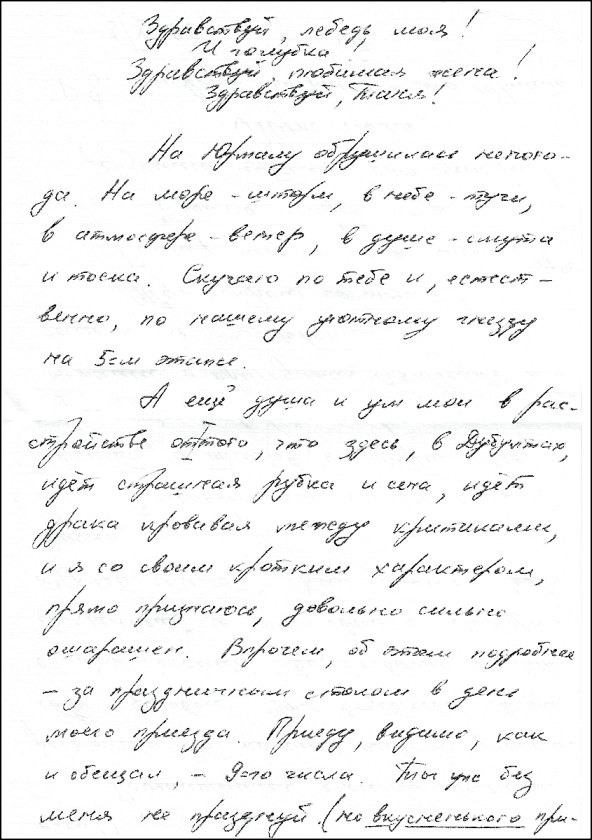 Здравствуй, лебедь моя!
И голубка!
Здравствуй, любимая жена!
Здравствуй, Таня!
На Юрмалу обрушилась непого-
да. На море – шторм, в небе – тучи,
в атмосфере – ветер, в душе – смута
и тоска. Скучаю по тебе и, естест-
венно, по нашему уютному гнезду
на 5-ом этаже.
А ещё душа и ум мои в рас-
стройстве оттого, что здесь, в Дубултах,
идёт страшная рубка и сеча, идёт
драка кровавая между критиками,
и я со своим кротким характером,
прямо признаюсь, довольно сильно
ошарашен. Впрочем, об этом подробнее
– за праздничным столом в день
моего приезда. Приеду, видимо, как
и обещал, – 9-го числа. Ты уж без
меня не празднуй. (но вкусненького при-